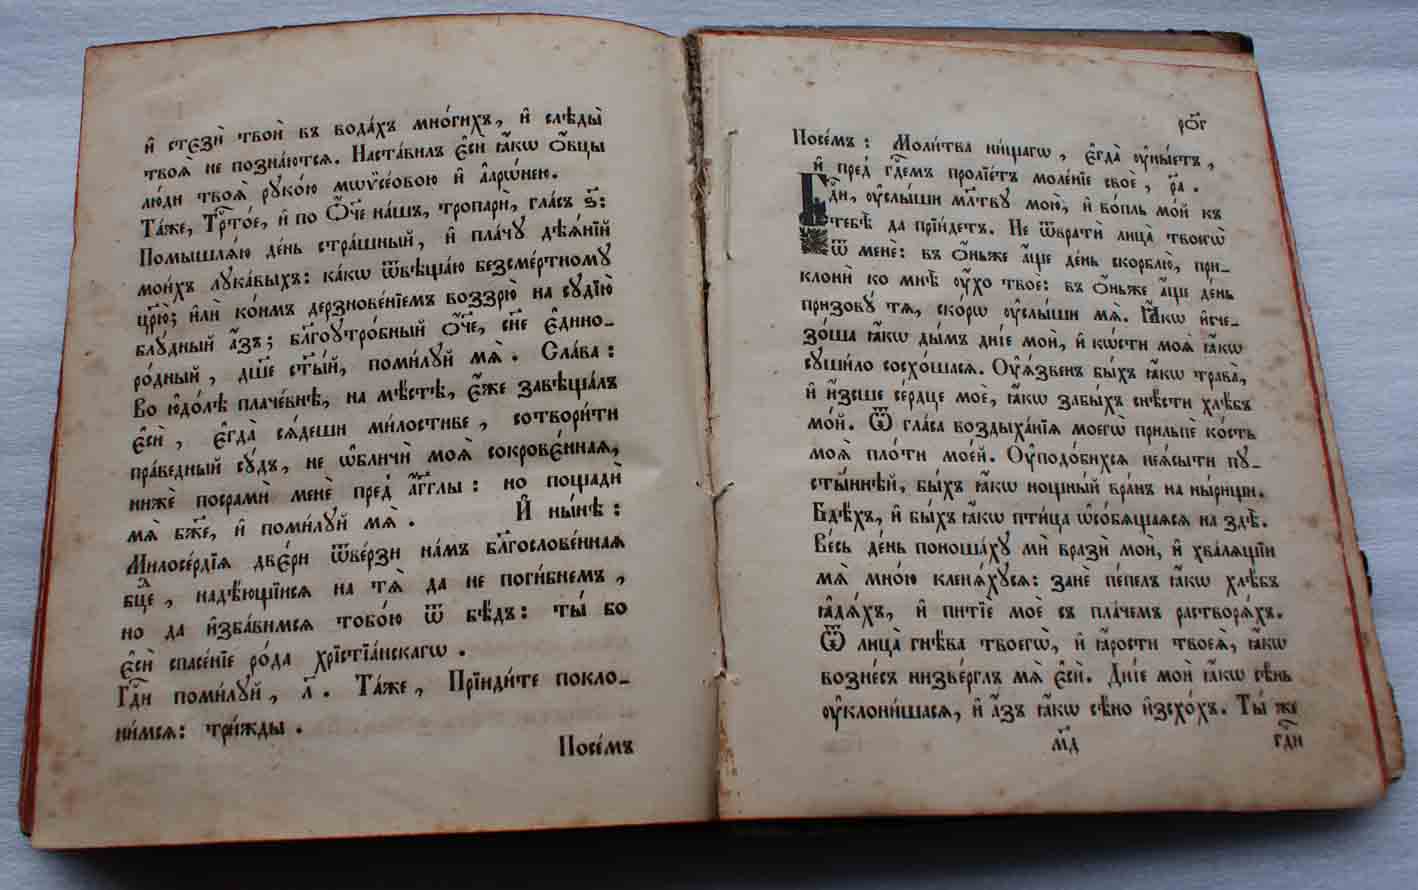 и҆ стєзи̑ твои̑ въ вода́хъ мно́гихъ, и҆ слѣды̀
твоѧ̑ не позна́ютсѧ. Наста́вилъ є҆сѝ ꙗ҆́кѡ ѻ҆́вцы
лю́ди твоѧ̑ руко́ю мѡѷсе́овою и҆ а҆арѡ́нею.
Та́же, Трⷭ҇то́е, и҆ по Ѻ҆́ч҃е на́шъ, тропарѝ, гла́съ ѕ҃:
Помышлѧ́ю де́нь стра́шный, и҆ пла́чу дѣѧ́нїй
мои́хъ лука́выхъ: ка́кѡ ѿвѣща́ю безсме́ртному
цр҃ю́; и҆лѝ ко́имъ дерзнове́нїемъ воззрю̀ на судїю̀
блу́дный а҆́зъ; бл҃гоутро́бный ѻ҆́ч҃е, сн҃е є҆дино-
ро́дный, дш҃е ст҃ы́й, поми́луй мѧ̀. Сла́ва:
Во ю҆до́лѣ плаче́внѣ, на мѣ́стѣ, є҆́же завѣща́лъ
є҆сѝ, є҆гда̀ сѧ́деши ми́лостиве, сотвори́ти
пра́ведный су́дъ, не ѡ҆бличѝ моѧ̑ сокрове́ннаѧ,
нижѐ посрамѝ менѐ пред̾ а҆́гг҃лы: но пощадѝ
мѧ̀ бж҃е, и҆ поми́луй мѧ̀. И҆ ны́нѣ:
Милосе́рдїѧ двє́ри ѿве́рзи на́мъ бл҃гослове́ннаѧ
бцⷣе, надѣ́ющїисѧ на тѧ̀ да не поги́бнемъ,
но да и҆зба́вимсѧ тобо́ю ѿ бѣ́дъ: ты́ бо
є҆сѝ спасе́нїе ро́да хрїстїа́нскагѡ.
Гдⷭ҇и поми́луй, л҃. Та́же, Прїиди́те покло-
ни́мсѧ: три́жды.
Посе́мъ
рѻ҃г
Посе́мъ: Моли́тва ни́щагѡ, є҆гда̀ ᲂу҆ны́етъ,
и҆ пред̾ гдⷭ҇емъ пролїе́тъ моле́нїе своѐ, р҃а.
Гдⷭ҇и, ᲂу҆слы́ши моли́тву мою̀, и҆ во́пль мо́й къ
тебѣ̀ да прїи́детъ. Не ѿвратѝ лица̀ твоегѡ̀
ѿ менє̀: въ ѻ҆́ньже а҆́ще де́нь скорблю̀, при-
клонѝ ко мнѣ̀ ᲂу҆́хо твоѐ: въ ѻ҆́ньже а҆́ще де́нь
призову́ тѧ, ско́рѡ ᲂу҆слы́ши мѧ̀. Ꙗ҆́кѡ и҆сче-
зо́ша ꙗ҆́кѡ ды́мъ дні́е мои̑, и҆ кѡ́сти моѧ̑ ꙗ҆́кѡ
суши́ло сосхо́шасѧ. Оу҆ѧ́звенъ бы́хъ ꙗ҆́кѡ трава̀,
и҆ и҆́зсше се́рдце моѐ, ꙗ҆́кѡ забы́хъ снѣ́сти хлѣ́бъ
мо́й. Ѿ гла́са воздыха́нїѧ моегѡ̀ прильпѐ ко́сть
моѧ̀ пло́ти мое́й. Оу҆подо́бихсѧ неѧ́сыти пу-
сты́ннѣй, бы́хъ ꙗ҆́кѡ нощны́й вра́нъ на ны́рищи.
Бдѣ́хъ, и҆ бы́хъ ꙗ҆́кѡ пти́ца ѡ҆со́бѧщаѧсѧ на здѣ̀.
Ве́сь де́нь поноша́ху мѝ вразѝ мои̑, и҆ хвалѧ́щїи
мѧ̀ мно́ю кленѧ́хусѧ: занѐ пе́пелъ ꙗ҆́кѡ хлѣ́бъ
ꙗ҆дѧ́хъ, и҆ питїе́ моѐ съ пла́чемъ растворѧ́хъ.
Ѿ лица̀ гнѣ́ва твоегѡ̀, и҆ ꙗ҆́рости твоеѧ̀, ꙗ҆́кѡ
возне́съ низве́рглъ мѧ̀ є҆сѝ. Дні́е мои̑ ꙗ҆́кѡ сѣ́нь
ᲂу҆клони́шасѧ, и҆ а҆́зъ ꙗ҆́кѡ сѣ́но и҆зсхо́хъ. Ты́ же
м҃д
гдⷭ҇и